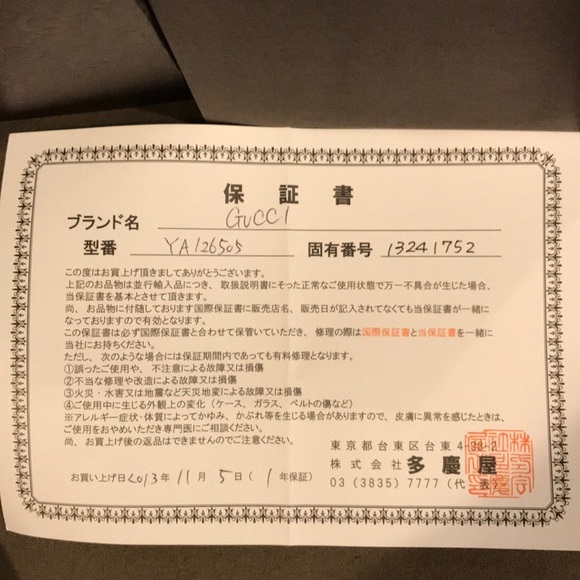 保証書
ブランド名 GUCCI
型番 YA126505 固有番号 13241752
この度はお買上げ頂きましてありがとうございます。
上記のお品物は並行輸入品につき、取扱説明書にそった正常なご使用状態で万一不具合が生じた場合、
当保証書を基本とさせて頂きます。
尚、お品物に付随しております国際保証書に販売店名、販売日が記入されてなくても当保証書が一緒に
なっておりますので有効となります。
この保証書は必ず国際保証書と合わせて保管いただき、修理の際は国際保証書と当保証書を一緒に
当社にお持ちください。
ただし、次のような場合には保証期間内であっても有料修理となります。
①誤ったご使用や、不注意による故障又は損傷
②不当な修理や改造による故障又は損傷
③火災・水害又は地震など天災地変による故障又は損傷
④ご使用中に生じる外観上の変化（ケース、ガラス、ベルトの傷など）
※アレルギー症状・体質によってかゆみ、かぶれ等を生じる場合がありますので、皮膚に異常を感じたときは、
ご使用をおやめいただき専門医にご相談ください。
尚、お買上げ後の返品はできませんのでご注意ください。
東京都台東区台東4-33-2
株式会社 多慶屋
お買い上げ日 2013年 11月 5日（1年保証）
03 (3835) 7777 (代表)